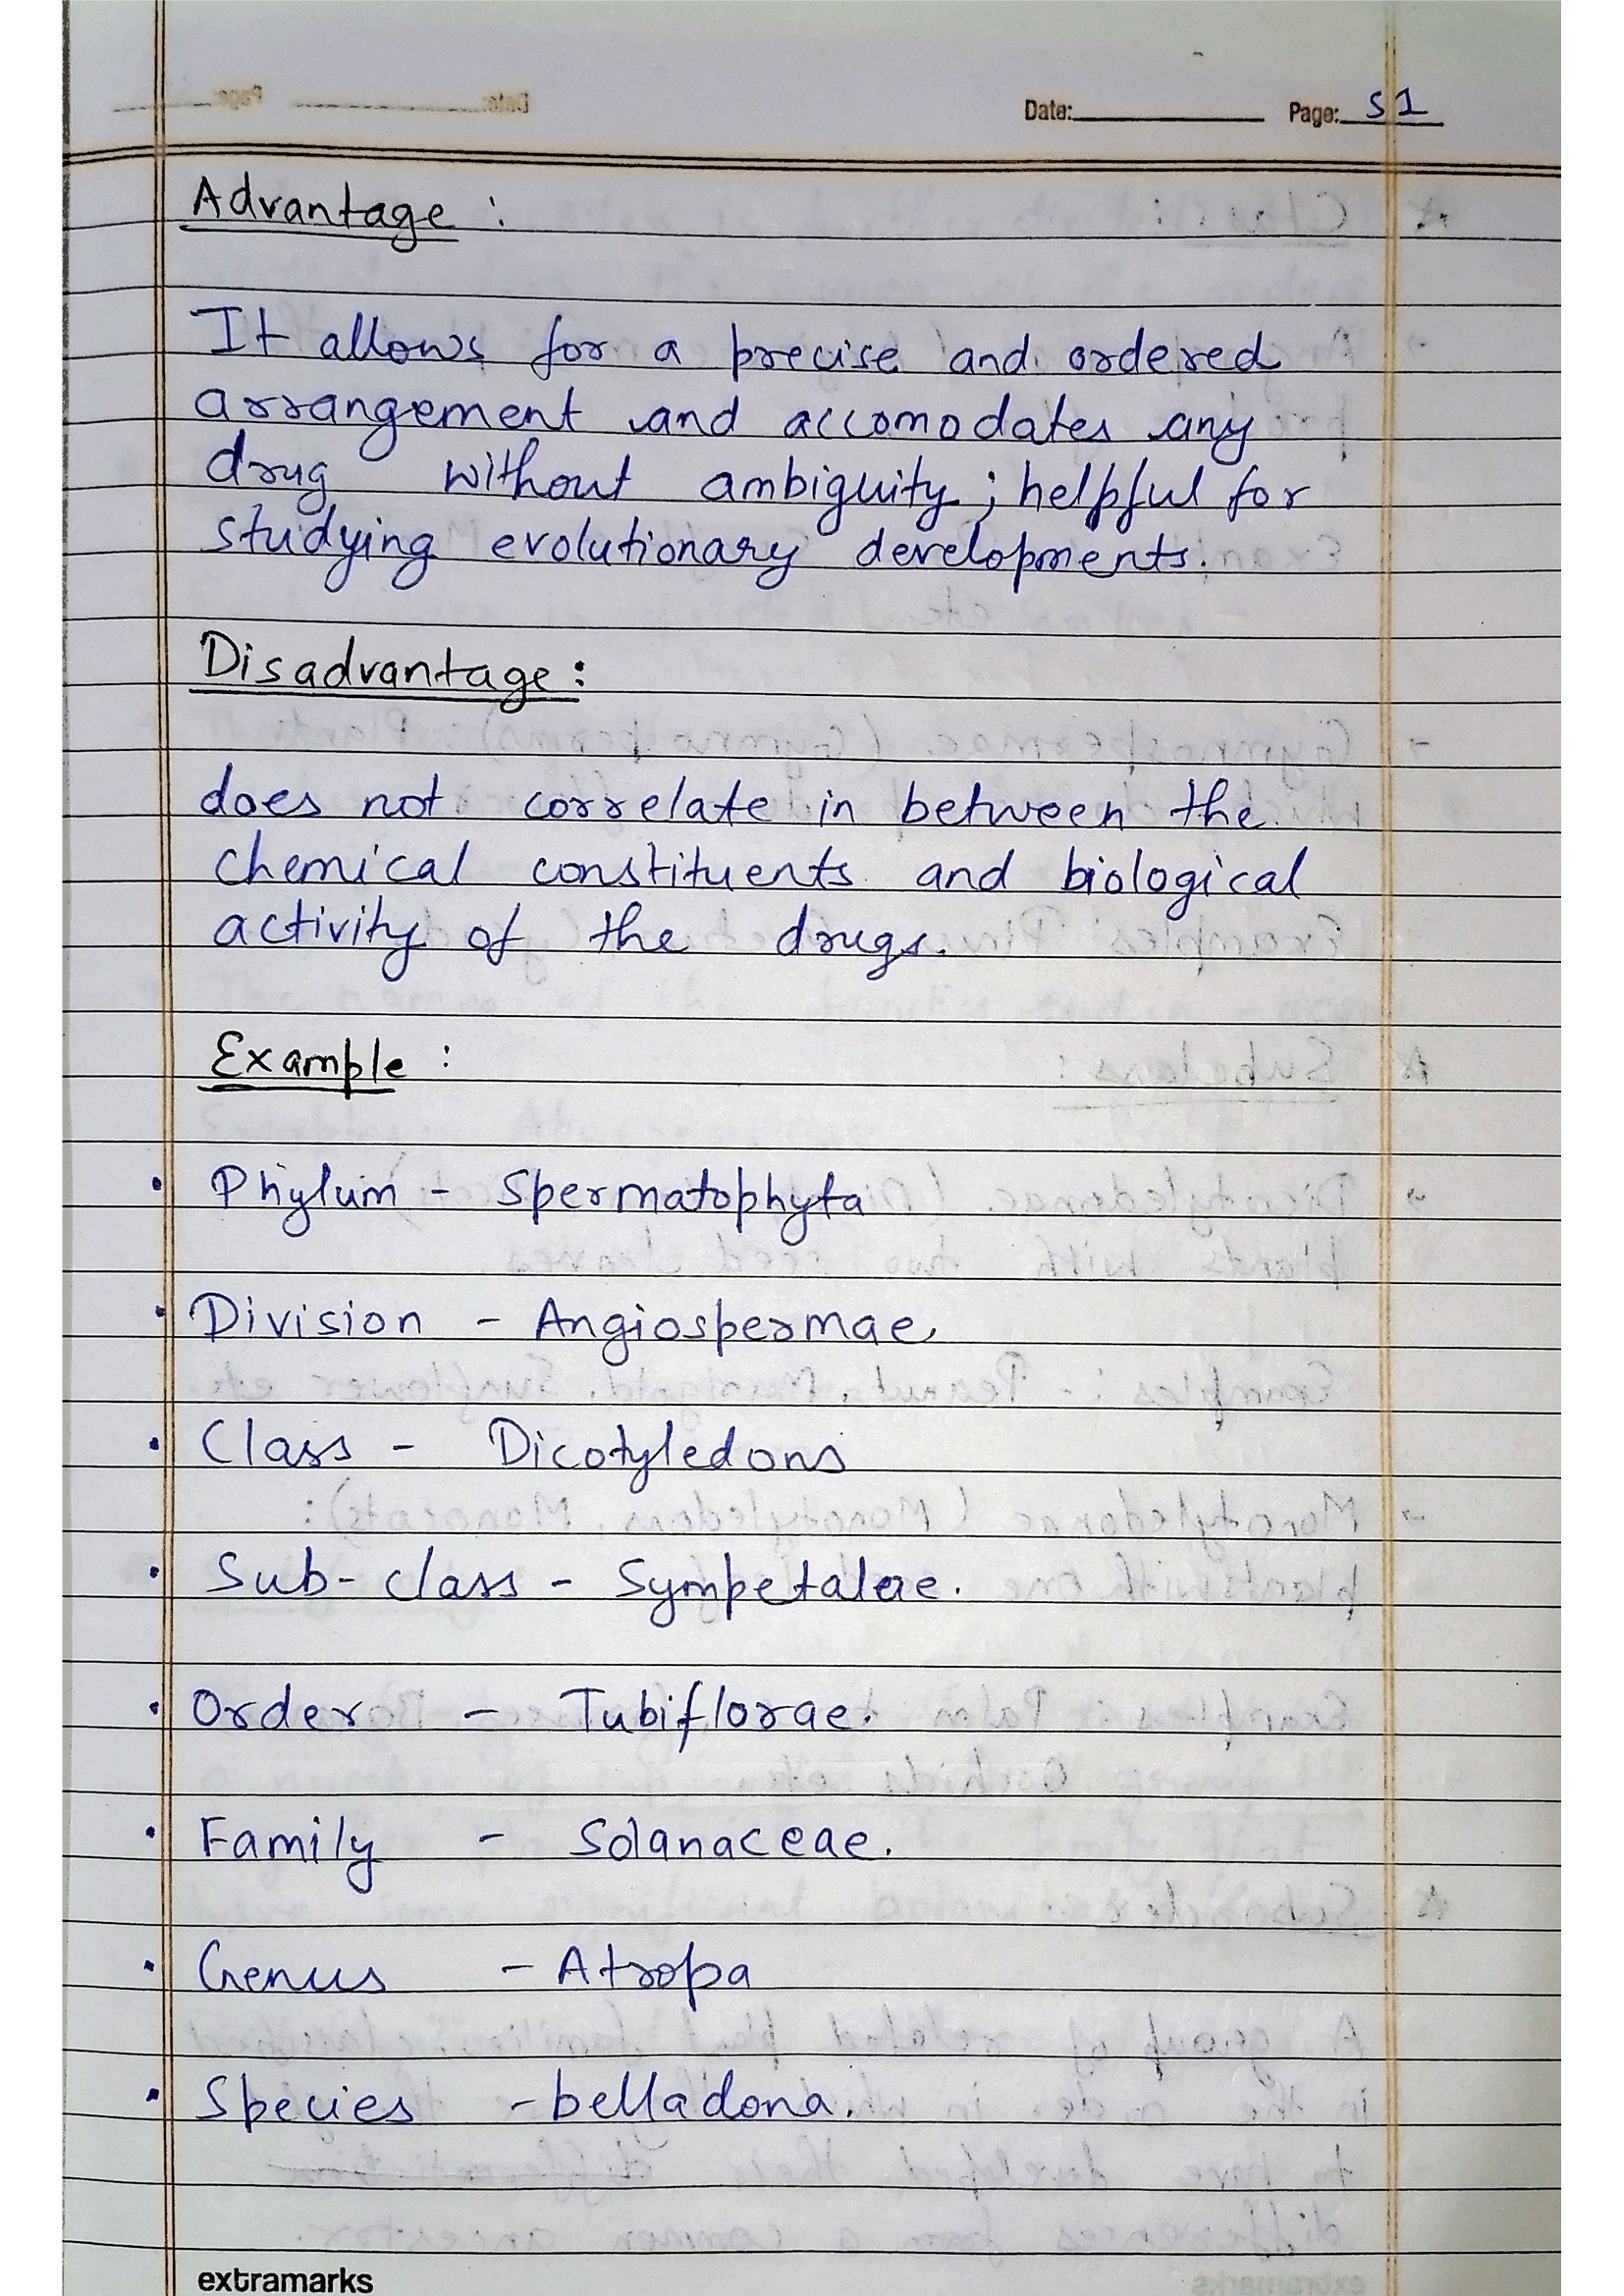 Date: Page: 51
Advantage :
It allows for a precise and ordered
arrangement and accomodates any
drug without ambiguity ; helpful for
studying evolutionary developments.
Disadvantage :
does not correlate in between the
chemical constituents and biological
activity of the drugs.
Example :
• Phylum - Spermatophyta
• Division - Angiospermae
• Class - Dicotyledons
• Sub-class - Sympetalae.
• Order - Tubiflorae.
• Family - Solanaceae.
• Genus - Atropa
• Species - belladona.
extramarks